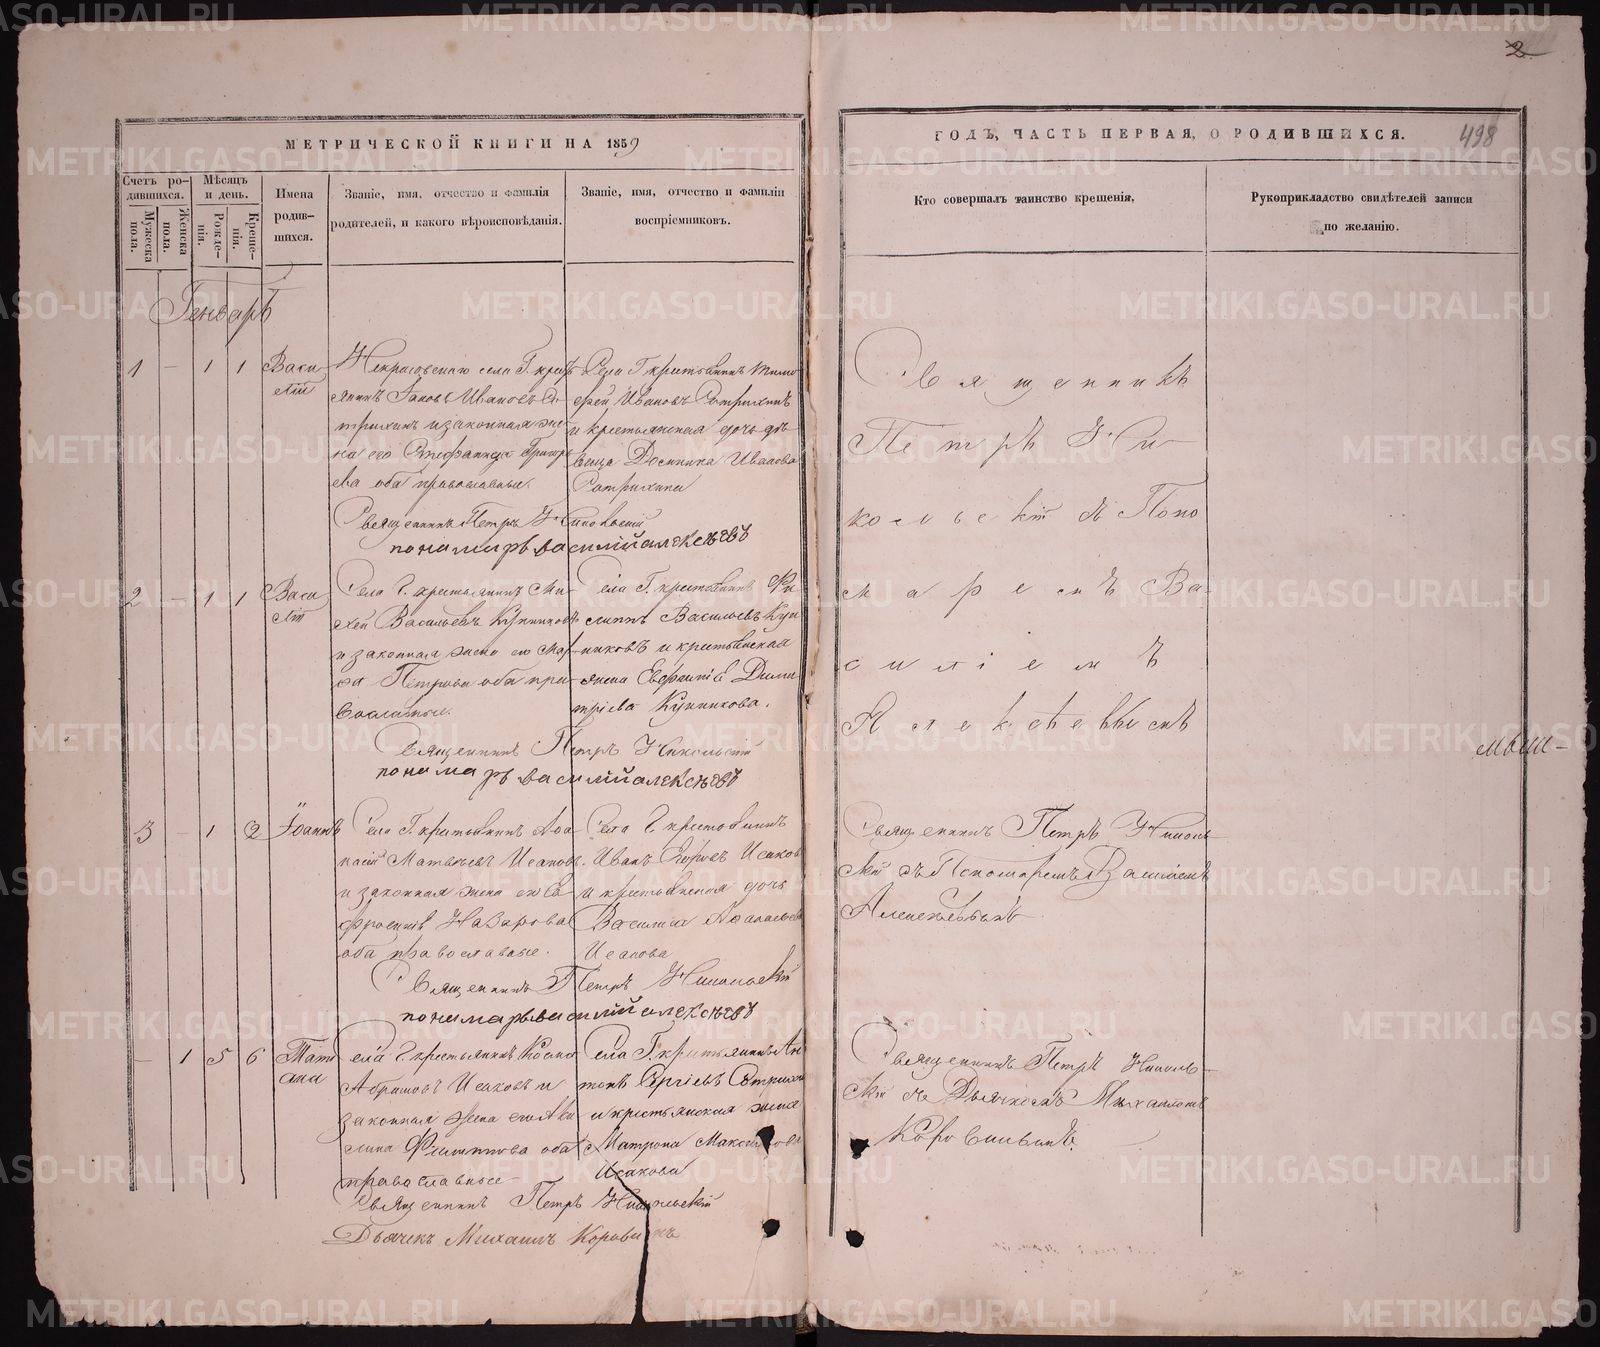 2
498
МЕТРИЧЕСКОЙ КНИГИ НА 1859
ГОДЪ, ЧАСТЬ ПЕРВАЯ, О РОДИВШИХСЯ.
Счетъ ро-
дившихся.
Мужеска
пола.
Женска
пола.
Мѣсяцъ
и день.
Рожде-
нія.
Креще-
нія.
Имена
родив-
шихся.
Званіе, имя, отчество и фамилія
родителей, и какого вѣроисповѣданія.
Званіе, имя, отчество и фамиліи
воспріемниковъ.
Кто совершалъ таинство крещенія,
Рукоприкладство свидѣтелей записи
по желанію.
Генварь
1 — 1 1 Васи
лій
Некрасовскаго села Г. кресть
янинъ Іаковъ Ивановъ Со
трихинъ и законная же
на его Стефанида Григорь
ева оба православные.
Села Г. крестьянинъ Тимо
фей Ивановъ Сотрихинъ
и крестьянская дочь дѣ
вица Домника Иванова
Сотрихина
Священникъ Петръ Никольскій
пономарь василійалексѣевъ
Священникъ
Петръ Ни-
кольскій съ Поно
маремъ Ва-
силіемъ
Алексѣевымъ
2 — 1 1 Васи
лій
Села Г. крестьянинъ Ми
хей Васильевъ Купниковъ
и законная жена его Мар-
ѳа Петрова оба пра-
вославные.
Села Г. крестьянинъ Фи
липпъ Васильевъ Куп
никовъ и крестьянская
жена Евфимія Дими
тріева Купникова.
Священникъ Петръ Никольскій
пономарь василійалексѣевъ
3 — 1 2 Іоаннъ
Села Г. крестьянинъ Аѳа
насій Матвѣевъ Исаковъ.
и законная жена его Ев
фросинія Назарова
оба православные.
Села Г. крестьянинъ
Иванъ Егоровъ Исаковъ
и крестьянская дочь
Василиса Аѳанасьева
Исакова
Священникъ Петръ Никольскій
пономарьвасилійалексѣевъ
Священникъ Петръ Николь-
скій съ Пономаремъ Василіемъ
Алексѣевымъ
— 1 5 6 Тати
ана
Села Г. крестьянинъ Козма
Абрамовъ Исаковъ и
законная жена его Аки
лина Филиппова оба
православные
Села Г. крестьянинъ Ан
тонъ Сергіевъ Сотрихи
и крестьянская жена
Матрона Максимова
Исакова
Священникъ Петръ Никольскій
Дьячекъ Михаилъ Коровинъ
Священникъ Петръ Николь-
скій съ Дьячкомъ Михаиломъ
Коровинымъ.
METRIKI.GASO-URAL.RU